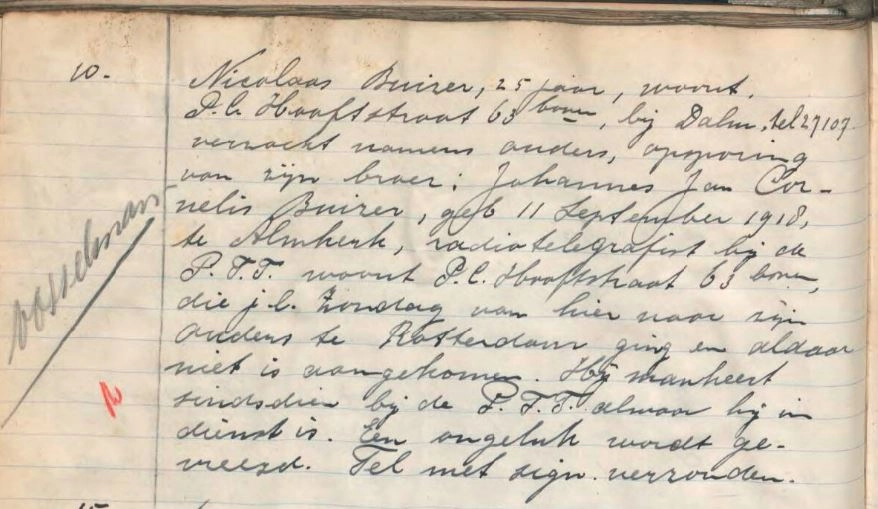 10.
Nicolaas Buizer, 25 jaar, woont.
P.C. Hooftstraat 63 boven, bij Dalm, tel 27107
verzoekt namens ouders, opsporing
van zijn broer: Johannes Jan Cor-
nelis Buizer, geb 11 September 1918,
te Almkerk, radiotelegrafist bij de
P.T.T. woont P.C. Hooftstraat 63 boven,
die j.l. Zondag van hier naar zijn
ouders te Rotterdam ging en aldaar
niet is aangekomen. Hij mankeert
sindsdien bij de P.T.T. alwaar hij in
dienst is. Een ongeluk wordt ge-
vreesd. Tel met sign. verzonden.
Vosselman